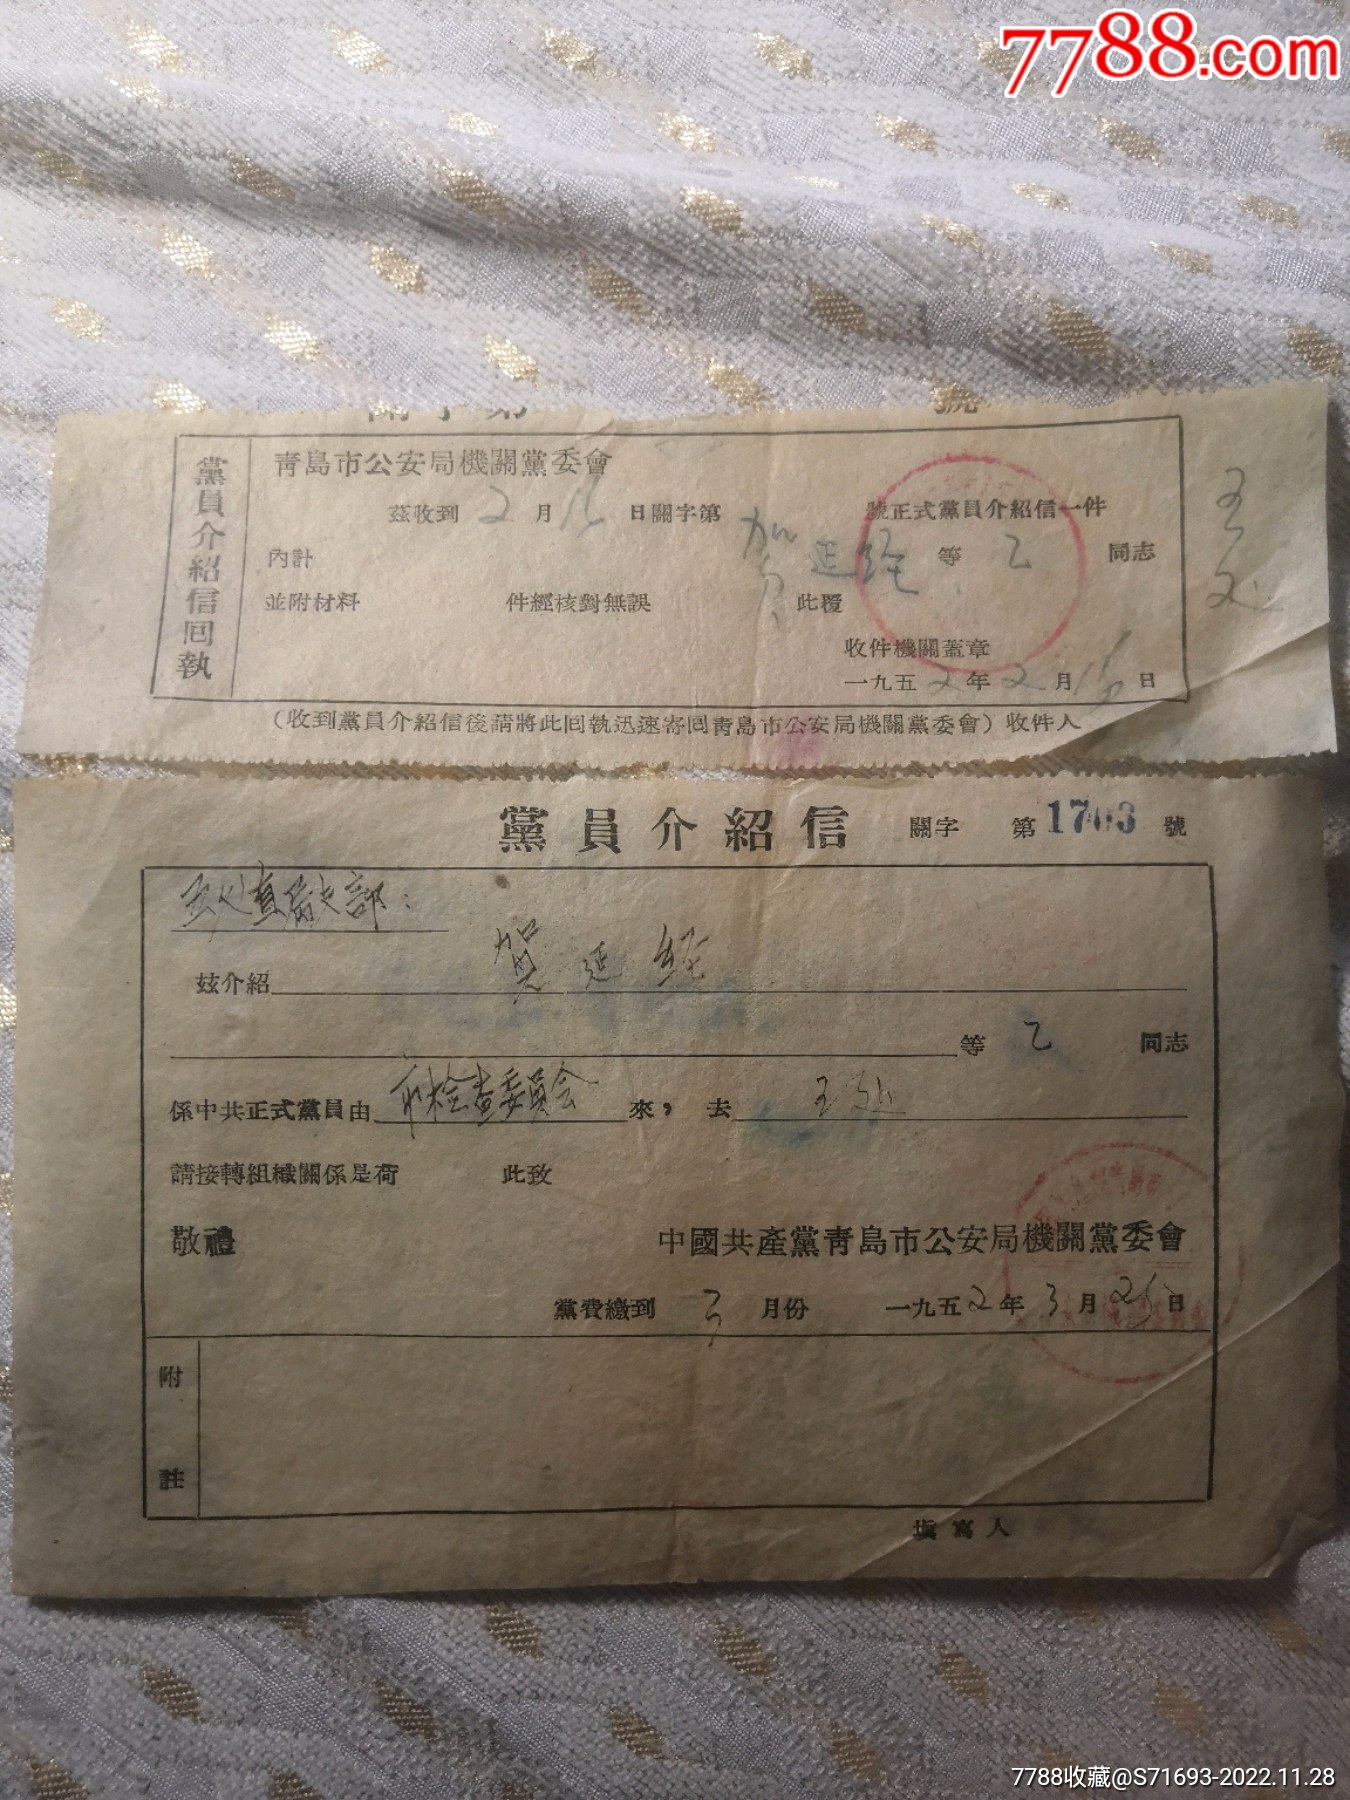 7788.com
青島市公安局機關黨委會
茲收到 2 月 日關字第 號正式黨員介紹信一件
內計 賀延經 等 乙 同志
並附材料 件經核對無誤 此覆
收件機關蓋章
一九五2年2月 日
黨員介紹信回執
(收到黨員介紹信後請將此回執迅速寄回青島市公安局機關黨委會)收件人
黨員介紹信 關字 第1703號
茲介紹 賀延經
等 乙 同志
係中共正式黨員由 市檢查委員会 來,去
請接轉組織關係是荷 此致
敬禮 中國共產黨青島市公安局機關黨委會
黨費繳到 3 月份 一九五2年3月 日
附註
填寫人
7788收藏@S71693-2022.11.28